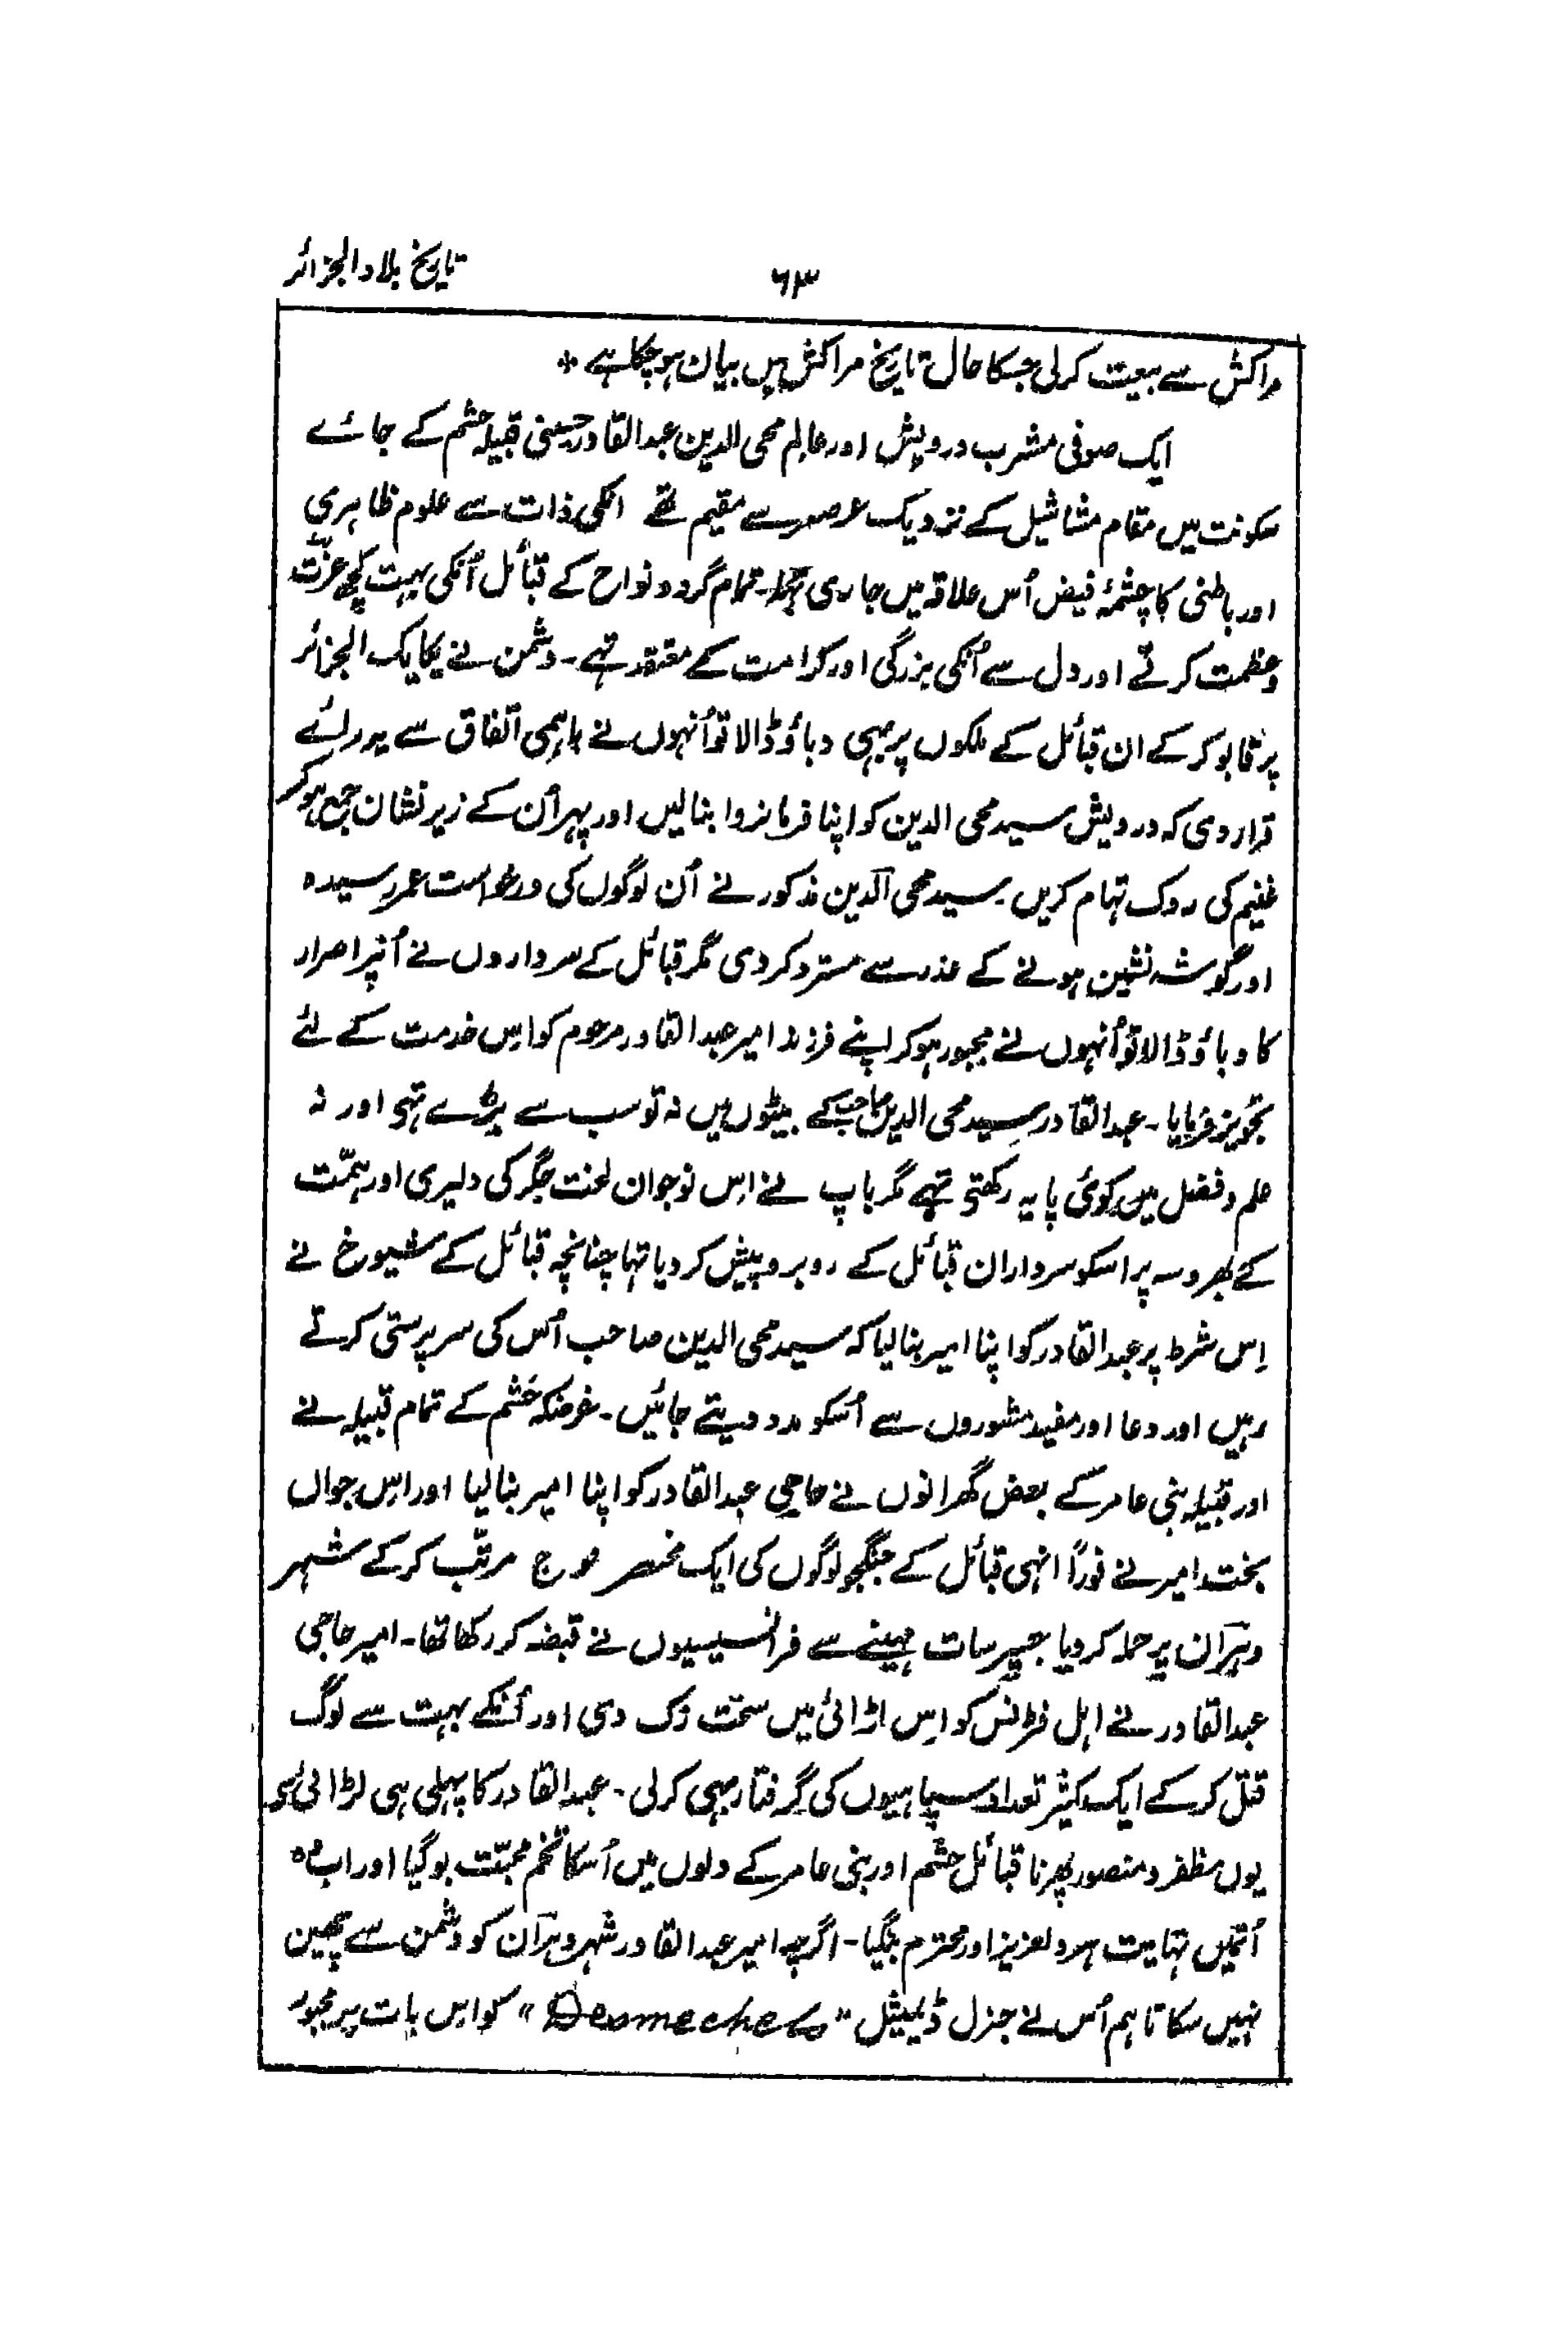 تاریخ بلاد الجزائر
۶۳
مراکش سے بیعت کرلی جسکا حال تاریخ مراکش میں بیان ہوچکا ہے *
ایک صوفی مشرب درویش اور عالم محی الدین عبدالقادر حسینی قبیلہ حشم کے جائے
سکونت میں مقام مشاشیل کے نزدیک عرصہ سے مقیم تھے انکی ذات سے علوم ظاہری
اور باطنی کا چشمۂ فیض اُس علاقہ میں جاری تہا۔ تمام گرد و نواح کے قبائل اُنکی بہت کچھ عزّت
و عظمت کرتے اور دل سے اُنکی بزرگی اور کرامت کے معتقد تہے۔ دشمن نے یکایک الجزائر
پر قابو کر کے ان قبائل کے ملکوں پر بہی دباؤ ڈالا تو اُنہوں نے باہمی اتفاق سے یہ رائے
قرار دی کہ درویش سید محی الدین کو اپنا فرمانروا بنالیں اور پہر اُن کے زیر نشان جمع ہوکر
غنیم کی روک تہام کریں۔ سید محی الدین مذکور نے اُن لوگوں کی درخواست عمر رسیدہ
اور گوشہ نشین ہونے کے عذر سے مسترد کردی مگر قبائل کے سرداروں نے اُنپر اصرار
کا دباؤ ڈالا تو اُنہوں نے مجبور ہوکر اپنے فرزند امیر عبدالقادر مرحوم کو اِس خدمت کے لئے
تجویز فرمایا۔ عبدالقادر سید محی الدین صاحب کے بیٹوں میں نہ تو سب سے بڑے تہو اور نہ
علم و فضل میں کوئی پایہ رکھتی تہے مگر باپ نے اِس نوجوان لخت جگر کی دلیری اور ہمّت
کے بھروسہ پر اسکو سرداران قبائل کے روبرو پیش کر دیا تہا چنانچہ قبائل کے شیوخ نے
اِس شرط پر عبدالقادر کو اپنا امیر بنا لیا کہ سید محی الدین صاحب اُس کی سرپرستی کرتے
رہیں اور دعا اور مفید مشوروں سے اُسکو مدد دیتے جائیں۔ غرضکہ حَشم کے تمام قبیلہ نے
اور قبیلہ بنی عامر کے بعض گھرانوں نے حاجی عبدالقادر کو اپنا امیر بنا لیا اور اِس جواں
بخت امیر نے فوراً انہی قبائل کے جنگجو لوگوں کی ایک مختصر فوج مرتّب کر کے شہر
وہران پر حملہ کردیا جسپر سات مہینے سے فرانسیسیوں نے قبضہ کر رکھا تھا۔ امیر حاجی
عبدالقادر نے اہل فرانس کو اِس لڑائی میں سخت زک دی اور اُنکے بہت سے لوگ
قتل کر کے ایک کثیر تعداد سپاہیوں کی گرفتار بہی کرلی۔ عبدالقادر کا پہلی ہی لڑائی سے
یوں مظفر و منصور پھرنا قبائل حشم اور بنی عامر کے دلوں میں اُسکا تخم محبّت بو گیا اور اب وہ
اُنمیں نہایت ہردلعزیز اور محترم بنگیا۔ اگرچہ امیر عبدالقادر شہر وہران کو دشمن سے چھین
نہیں سکا تاہم اُس نے جنرل ڈیمیشل "Desmeeches" کو اِس بات پر مجبور